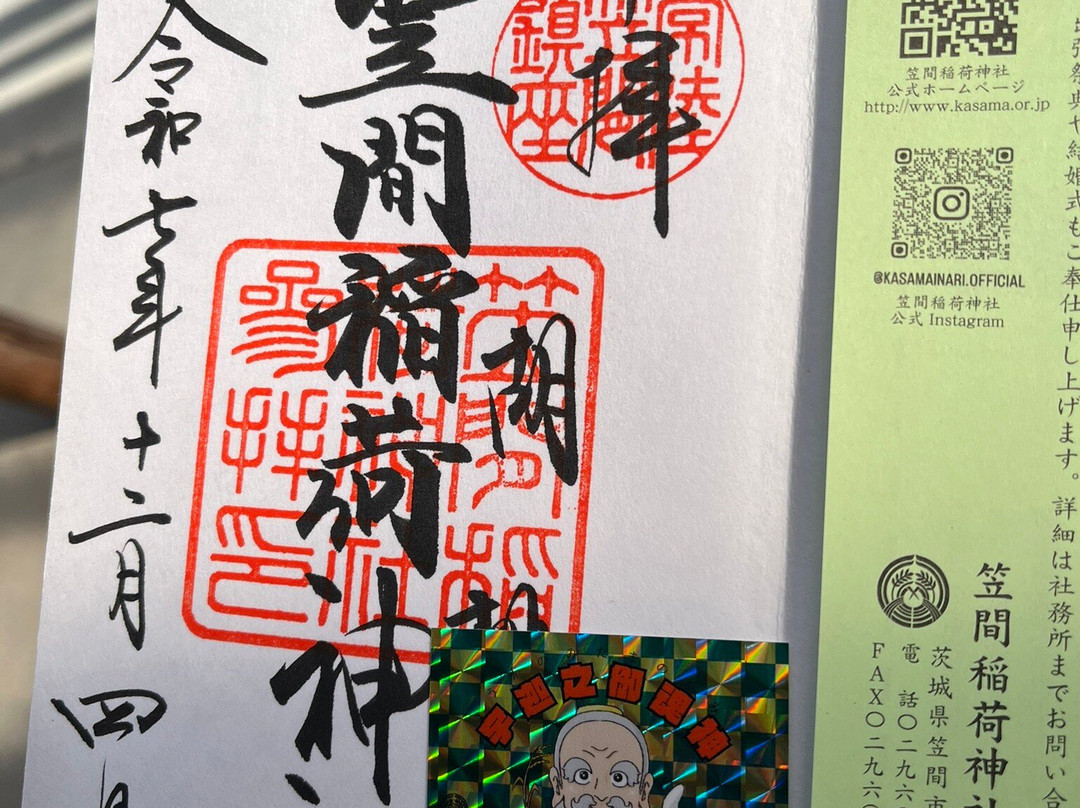 拝
常陸
鎮座
胡
笠間稲荷神
笠間稲
参拝印
令和七年十二月四日
笠間稲荷神社
公式ホームページ
http://www.kasama.or.jp
@KASAMAINARI.OFFICIAL
笠間稲荷神社
公式 Instagram
祭典や結婚式もご奉仕申し上げます。詳細は社務所までお問い合
笠間稲荷神社
茨城県笠間市
電話〇二九六
FAX〇二九六